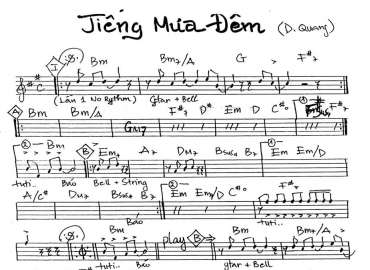 Tiếng Mưa Đêm (D. Quang)
I Bm Bm7/A G F#7
(Lần 1 No Rythm) Gtar + Bell
A Bm Bm/A F#7 D# Em D C#o F#7
Gm7
2 Bm B Em7 A7 Dm7 Bsus4 B7 1 Em Em/D
tuti.. Báo Bell + String
A/C# Dm7 Bsus4 B7 2 Em Em/D C#o F#7
Báo tuti..
play B Bm Bm7/A
tuti.. Báo gtar + Bell